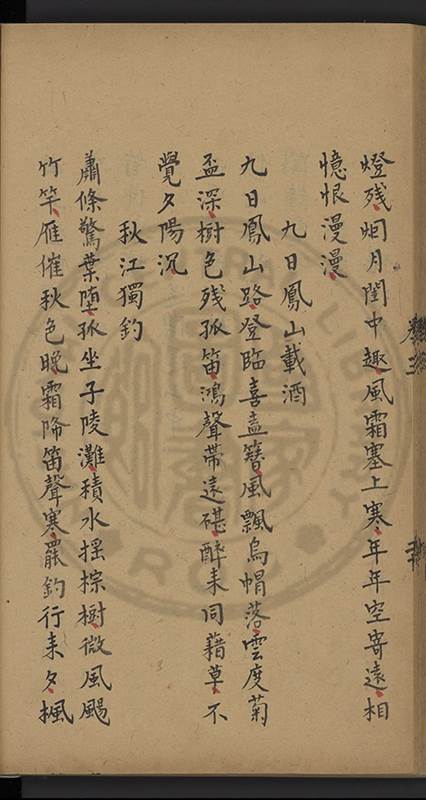 燈残烱月閨中趣風霜塞上寒年年空寄遠相
憶恨漫漫
九日鳳山載酒
九日鳳山路登臨喜盍簪風飄烏帽落雲度菊
盃深樹色残孤笛鴻聲帯遠碪醉来同藉草不
覺夕陽沉
秋江獨釣
蕭條驚葉堕孤坐子陵灘積水揺棕樹微風颺
竹竿雁催秋色晩霜降笛聲寒罷釣行来夕楓